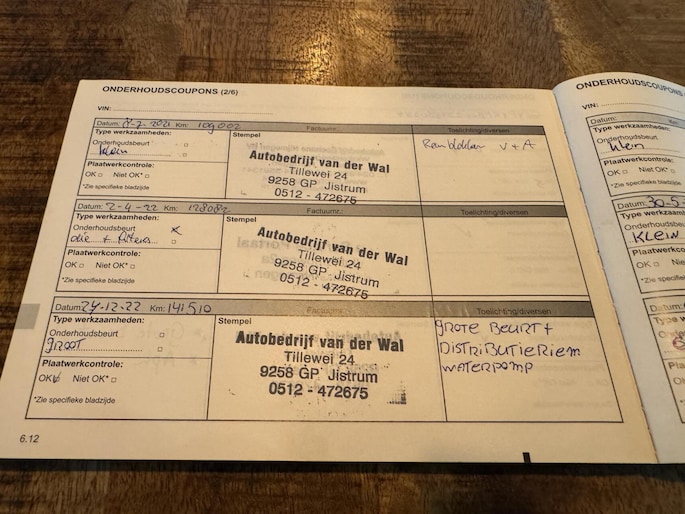 ONDERHOUDSCOUPONS (2/6)
VIN:
Datum: 8-2-2021 Km: 109002
Factuurnr.:
Toelichting/diversen
Type werkzaamheden:
Stempel
Onderhoudsbeurt
klein
Plaatwerkcontrole:
OK Niet OK*
*Zie specifieke bladzijde
Autobedrijf van der Wal
Tillewei 24
9258 GP Jistrum
0512 - 472675
V + A
Datum: 2-4-22 Km:
Factuurnr.:
Toelichting/diversen
Type werkzaamheden:
Stempel
Onderhoudsbeurt x
olie + filters
Plaatwerkcontrole:
OK Niet OK*
*Zie specifieke bladzijde
Autobedrijf van der Wal
Tillewei 24
9258 GP Jistrum
0512 - 472675
Datum: 24-12-22 Km: 141510
Factuurnr.:
Toelichting/diversen
Type werkzaamheden:
Stempel
Onderhoudsbeurt
GROOT
Plaatwerkcontrole:
OK Niet OK*
*Zie specifieke bladzijde
Autobedrijf van der Wal
Tillewei 24
9258 GP Jistrum
0512 - 472675
GROTE BEURT +
DISTRIBUTIERIEM
WATERPOMP
6.12
ONDERHOUDSCOUPONS
VIN:
Datum:
Type werkzaamheden:
Onderhoudsbeurt
klein
Plaatwerkcontrole:
OK Niet OK*
*Zie specifieke bladzijde
Datum: 30-5-
Type werkzaam
Onderhoudsbeu
KLEIN
Plaatwerkco
OK Niet
*Zie specifieke